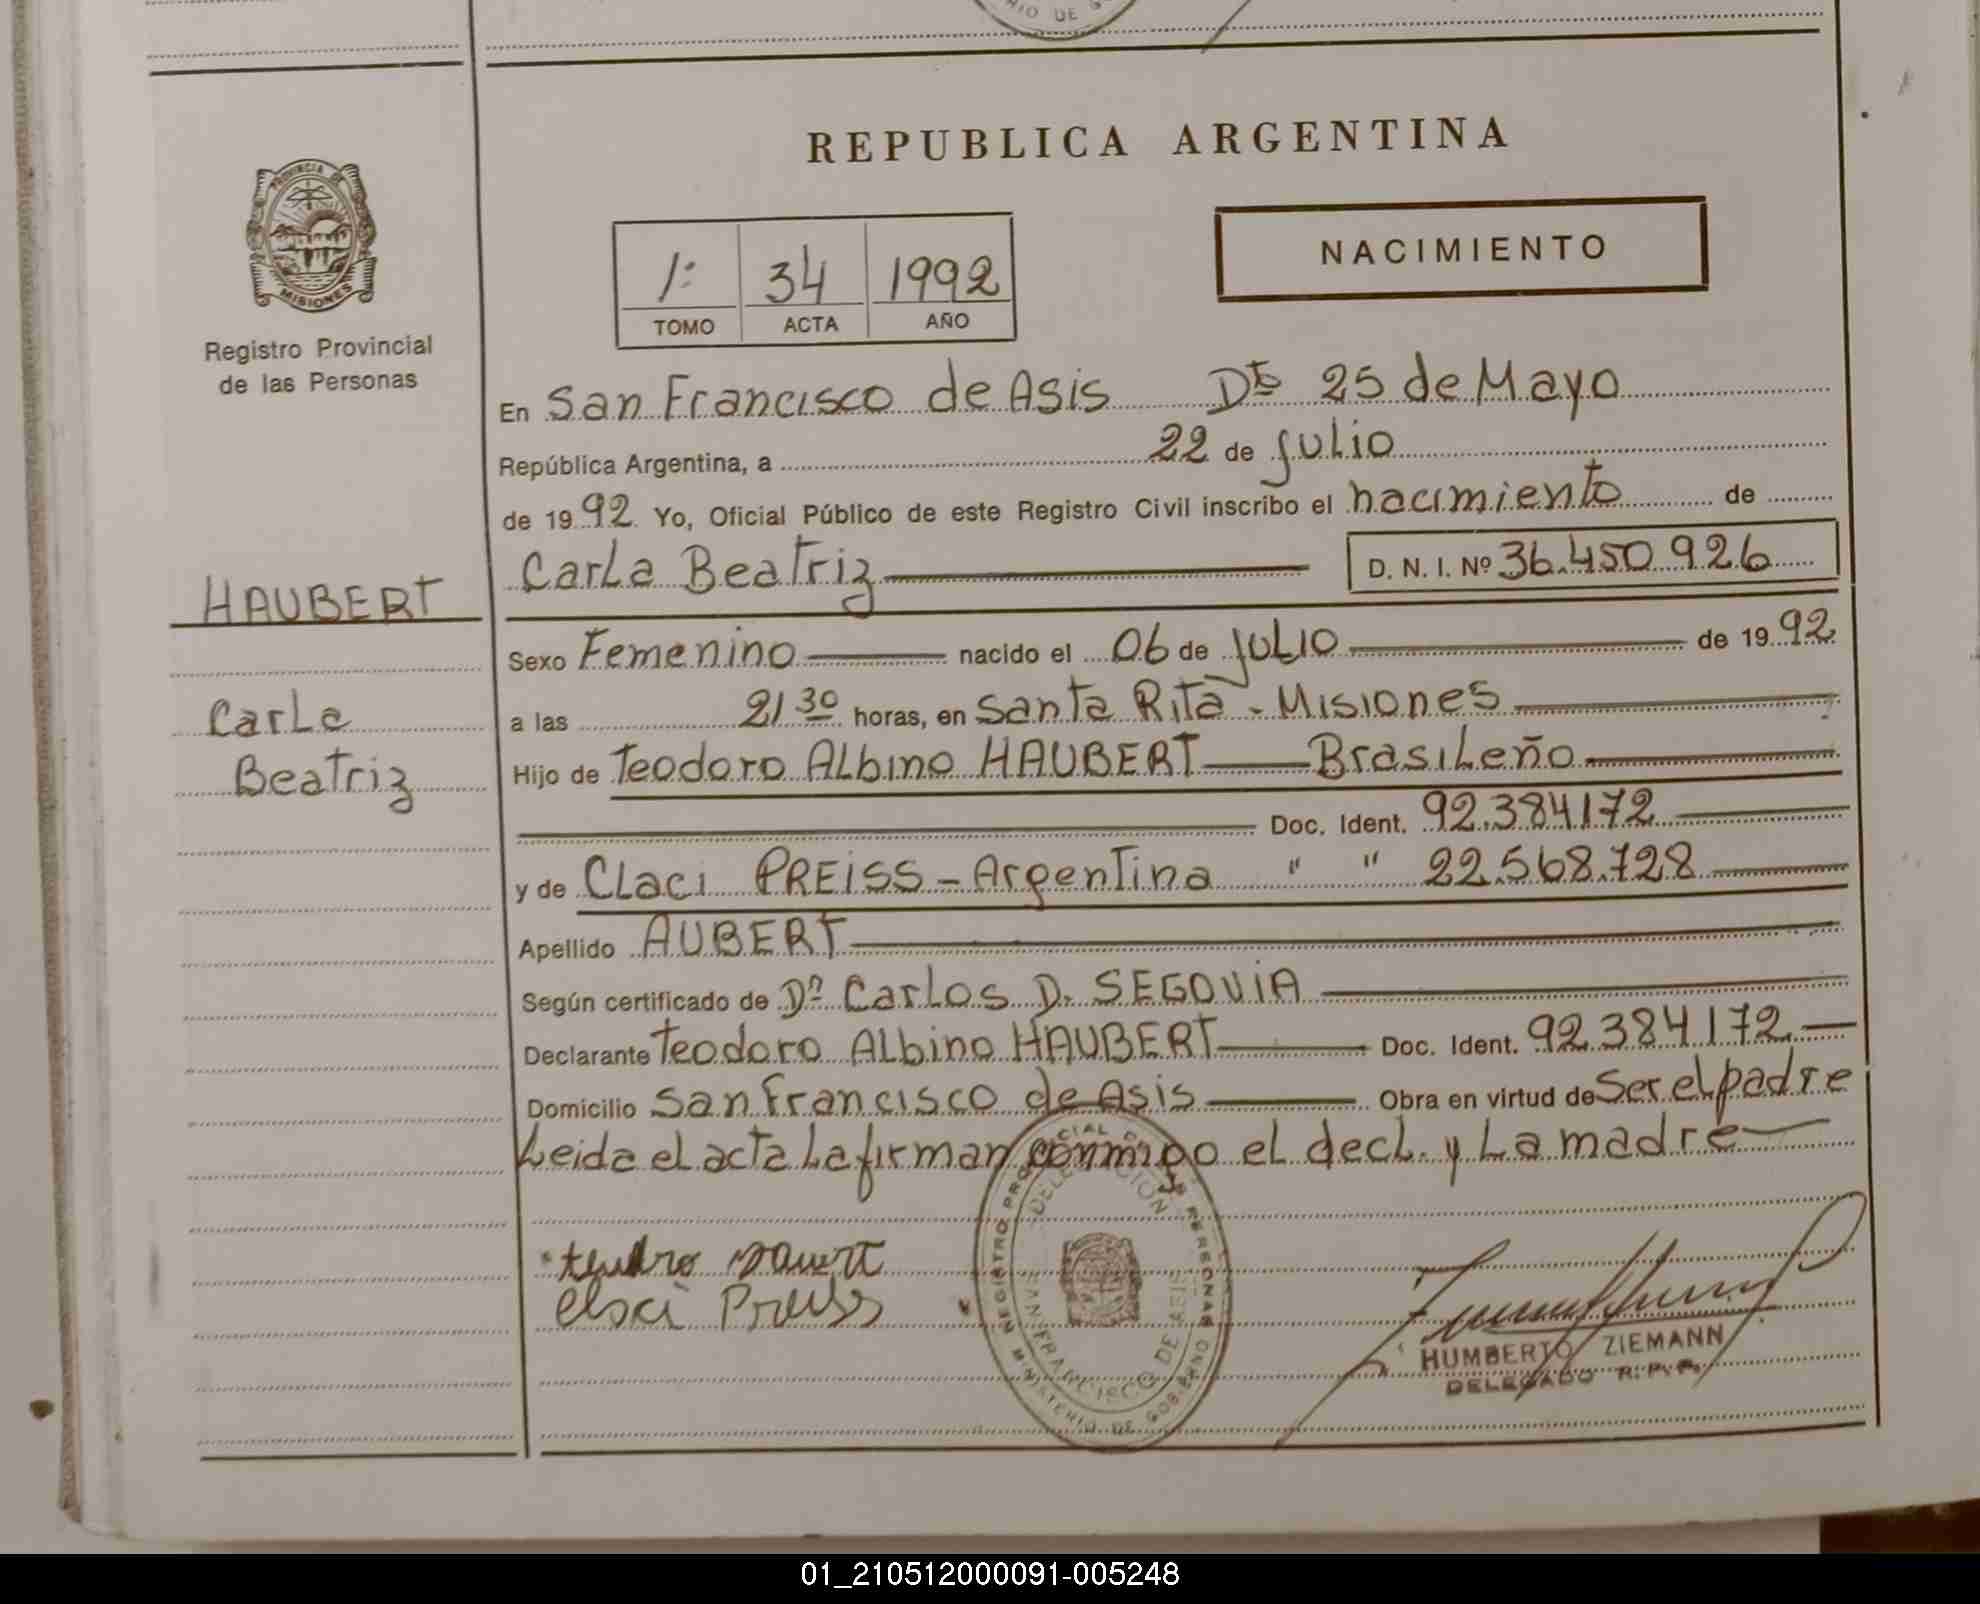 REPUBLICA ARGENTINA
PROVINCIA DE
MISIONES
Registro Provincial
de las Personas
1º 34 1992
TOMO ACTA AÑO
NACIMIENTO
En San Francisco de Asis Dto 25 de Mayo
República Argentina, a 22 de julio
de 1992 Yo, Oficial Público de este Registro Civil inscribo el nacimiento de
Carla Beatriz D. N. I. Nº 36.450.926
HAUBERT
Carla
Beatriz
Sexo Femenino nacido el 06 de JULIO de 1992
a las 21 30 horas, en Santa Rita - Misiones
Hijo de Teodoro Albino HAUBERT Brasileño
Doc. Ident. 92.384172
y de Claci PREISS - Argentina " " 22.568.728
Apellido AUBERT
Según certificado de Dn Carlos D. SEGOVIA
Declarante Teodoro Albino HAUBERT Doc. Ident. 92.384.172
Domicilio San Francisco de Asis Obra en virtud de Ser el padre
Leida el acta la firman conmigo el decl. y la madre
Preiss
REGISTRO PROVINCIAL DE LAS PERSONAS
DELEGACION
SAN FRANCISCO DE ASIS
MINISTERIO DE GOBIERNO
HUMBERTO ZIEMANN
DELEGADO R.P.P.
01_210512000091-005248